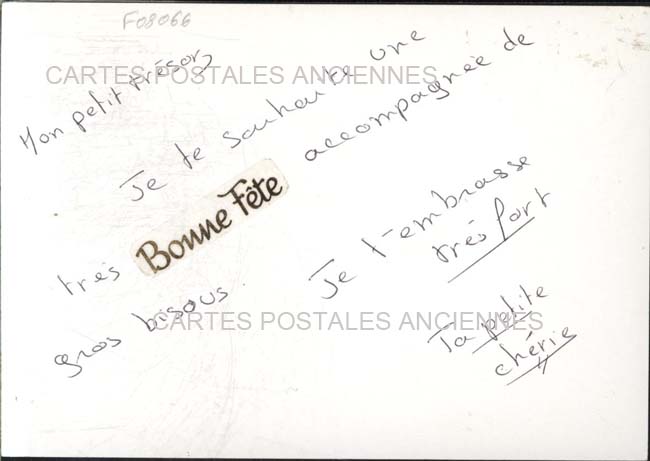 F08066
CARTES POSTALES ANCIENNES
Mon petit trésor,
Je te souhaite une
très Bonne Fête accompagnée de
gros bisous.
Je t'embrasse
très fort
CARTES POSTALES ANCIENNES
Ta petite
chérie